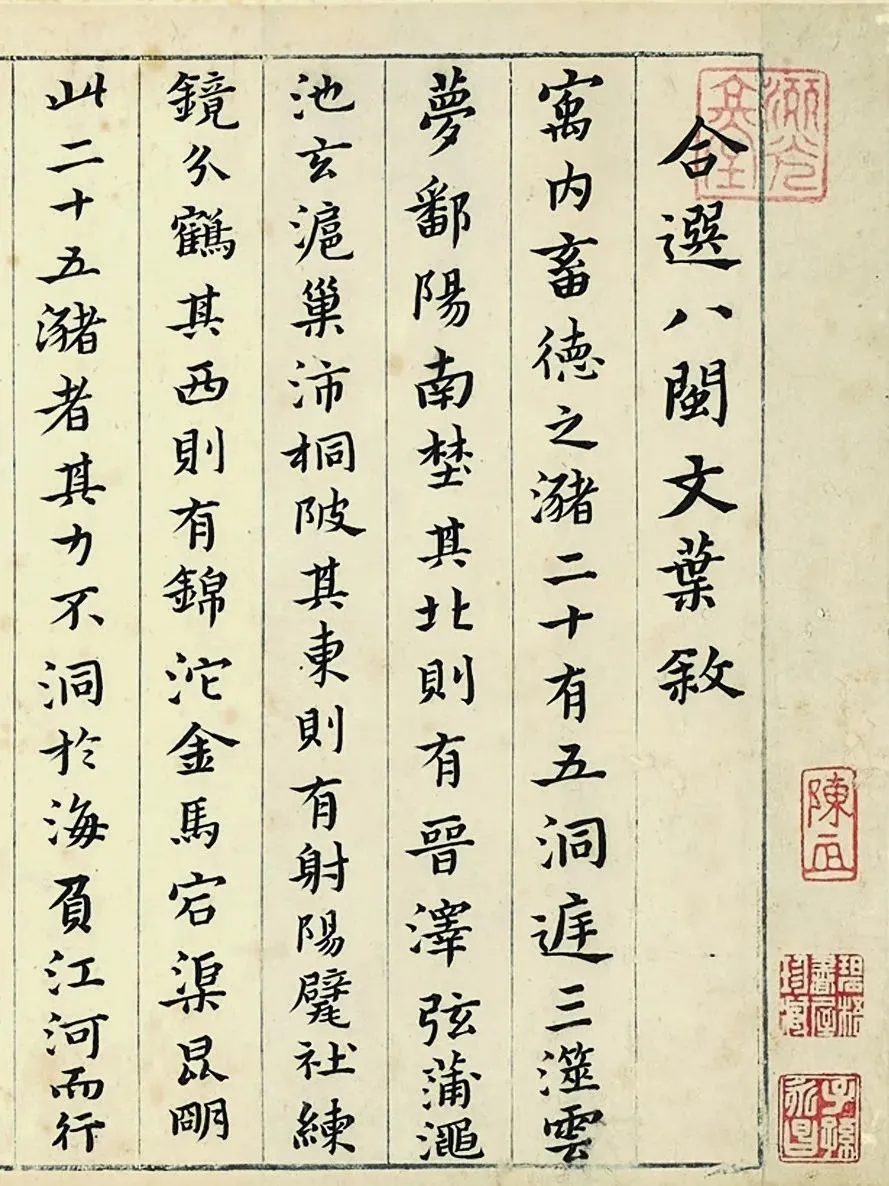 合選八閩文葉敘
寓内畜徳之瀦二十有五洞庭三澨雲
夢鄱陽南埜其北則有晉澤弦蒲澠
池玄滬巢沛桐陂其東則有射陽甓社練
鏡分鶴其西則有錦沱金馬宕渠昆明
此二十五瀦者其力不洞於海負江河而行
子孫永昌